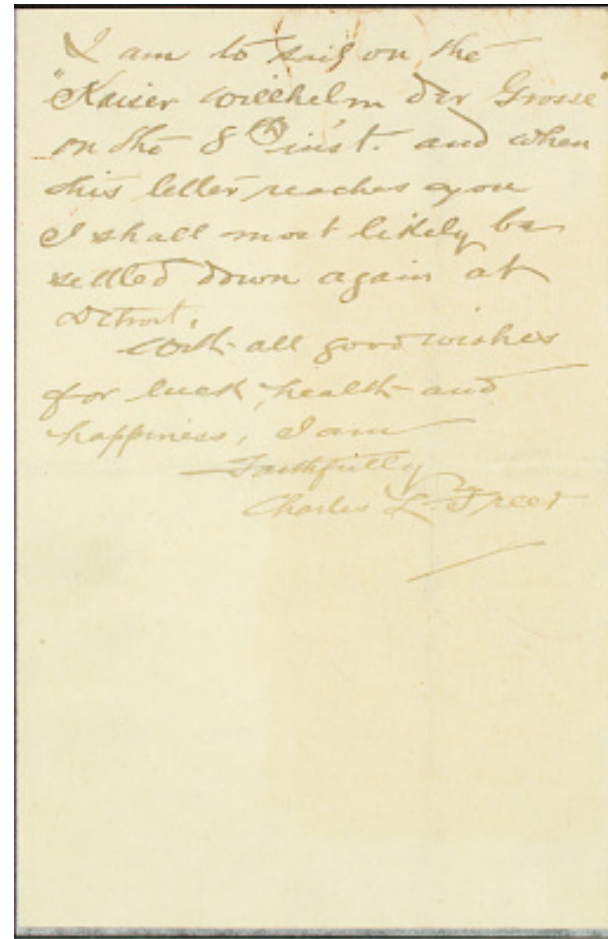 I am to sail on the
"Kaiser Willhelm der Grosse"
on the 8th inst. and when
this letter reaches you
I shall most likely be
settled down again at
Detroit.
With all good wishes
for luck, health and
happiness, I am
Faithfully
Charles L. Freer